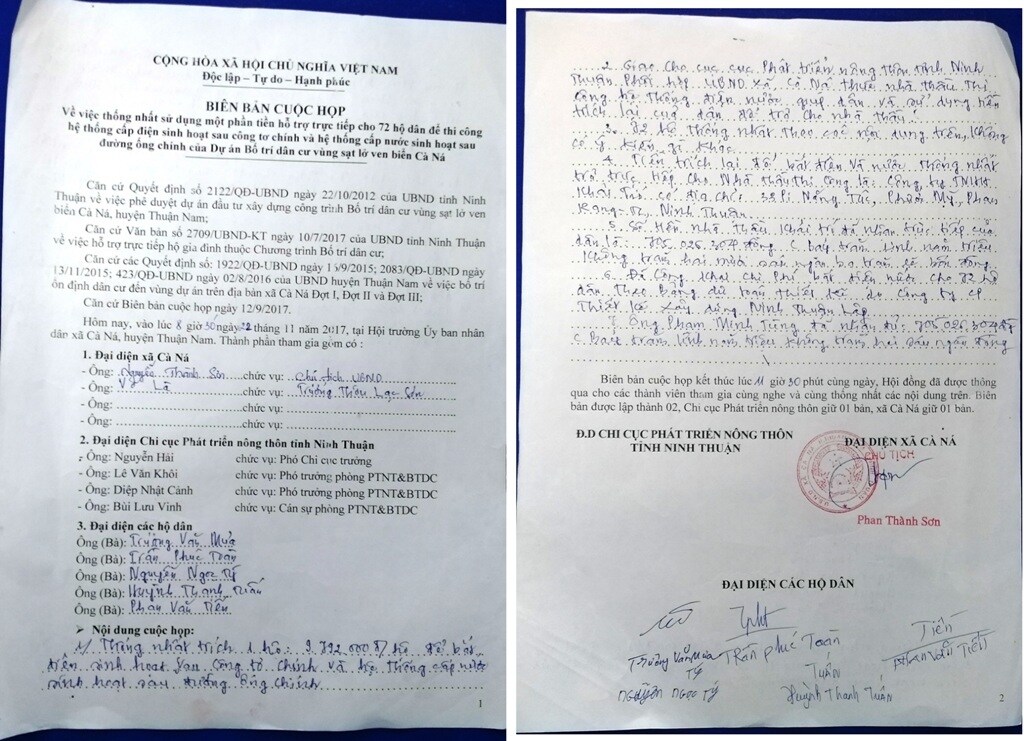 CỘNG HÒA XÃ HỘI CHỦ NGHĨA VIỆT NAM
Độc lập – Tự do – Hạnh phúc
BIÊN BẢN CUỘC HỌP
Về việc thống nhất sử dụng một phần tiền hỗ trợ trực tiếp cho 72 hộ dân để thi công
hệ thống cấp điện sinh hoạt sau công tơ chính và hệ thống cấp nước sinh hoạt sau
đường ống chính của Dự án Bố trí dân cư vùng sạt lở ven biển Cà Ná
Căn cứ Quyết định số 2122/QĐ-UBND ngày 22/10/2012 của UBND tỉnh Ninh
Thuận về việc phê duyệt dự án đầu tư xây dựng công trình Bố trí dân cư vùng sạt lở ven
biển Cà Ná, huyện Thuận Nam;
Căn cứ Văn bản số 2709/UBND-KT ngày 10/7/2017 của UBND tỉnh Ninh Thuận
về việc hỗ trợ trực tiếp hộ gia đình thuộc Chương trình Bố trí dân cư;
Căn cứ các Quyết định số: 1922/QĐ-UBND ngày 15/9/2015; 2083/QĐ-UBND ngày
13/11/2015; 423/QĐ-UBND ngày 02/8/2016 của UBND huyện Thuận Nam về việc bố trí
ổn định dân cư đến vùng dự án trên địa bàn xã Cà Ná Đợt I, Đợt II và Đợt III;
Căn cứ Biên bản cuộc họp ngày 12/9/2017.
Hôm nay, vào lúc 8 giờ 30 ngày 22 tháng 11 năm 2017, tại Hội trường Ủy ban nhân
dân xã Cà Ná, huyện Thuận Nam. Thành phần tham gia gồm có :
1. Đại diện xã Cà Ná
- Ông: Thành Sơn chức vụ: Chủ tịch UBND
- Ông: Lã chức vụ: Trưởng Thôn Lạc Sơn
- Ông: chức vụ:
- Ông: chức vụ:
2. Đại diện Chi cục Phát triển nông thôn tỉnh Ninh Thuận
- Ông: Nguyễn Hải chức vụ: Phó Chi cục trưởng
- Ông: Lê Văn Khôi chức vụ: Phó trưởng phòng PTNT&BTDC
- Ông: Diệp Nhật Cảnh chức vụ: Phó trưởng phòng PTNT&BTDC
- Ông: Bùi Lưu Vinh chức vụ: Cán sự phòng PTNT&BTDC
3. Đại diện các hộ dân
Ông (Bà): Trương Văn Mưa
Ông (Bà): Trần Phúc Toàn
Ông (Bà): Nguyễn Ngọc Tý
Ông (Bà): Huỳnh Thanh Tuấn
Ông (Bà): Phan Văn Tiến
➤ Nội dung cuộc họp:
1/ Thống nhất trích 1 hộ: 9.792.000 đ/hộ để bắt
điện sinh hoạt sau công tơ chính và hệ thống cấp nước
sinh hoạt sau đường ống chính
1
2. Giao cho chi cục Phát triển nông thôn tỉnh Ninh
Thuận phối hợp UBND xã Cà Ná thuê nhà thầu thi
công hệ thống điện nước giúp dân và sử dụng tiền
trích lại của dân để trả cho nhà thầu.
3. 72 hộ thống nhất theo các nội dung trên, không
có ý kiến gì khác
4. Tiền trích lại để bắt điện và nước thống nhất
trả trực tiếp cho Nhà thầu thi công là: Công ty TNHH
Khải Trí, có địa chỉ: Phước Mỹ, Phan
Rang-TC, Ninh Thuận
5. Nhà thầu Khải Trí đã nhận trực tiếp của
dân là: 705.026.304 đồng (bảy trăm linh năm triệu
không trăm hai mươi sáu ngàn ba trăm lẻ bốn đồng
6. Đã công khai chi phí bắt điện nước cho 72 hộ
dân theo bảng dự toán thiết kế do công ty CP
Thiết kế xây dựng Ninh Thuận lập
7. Ông Phạm Minh Tùng đã nhận đủ: 705.026.304 đồng
( bảy trăm linh năm triệu không trăm hai sáu ngàn đồng
Biên bản cuộc họp kết thúc lúc 11 giờ 30 phút cùng ngày, Hội đồng đã được thông
qua cho các thành viên tham gia cùng nghe và cùng thống nhất các nội dung trên. Biên
bản được lập thành 02, Chi cục Phát triển nông thôn giữ 01 bản, xã Cà Ná giữ 01 bản.
Đ.D CHI CỤC PHÁT TRIỂN NÔNG THÔN
TỈNH NINH THUẬN
ĐẠI DIỆN XÃ CÀ NÁ
CHỦ TỊCH
Phan Thành Sơn
ĐẠI DIỆN CÁC HỘ DÂN
Trương Văn Mưa
Trần Phúc Toàn
Tiến
Phan Văn Tiến
Tý
Nguyễn Ngọc Tý
Tuấn
Huỳnh Thanh Tuấn
2